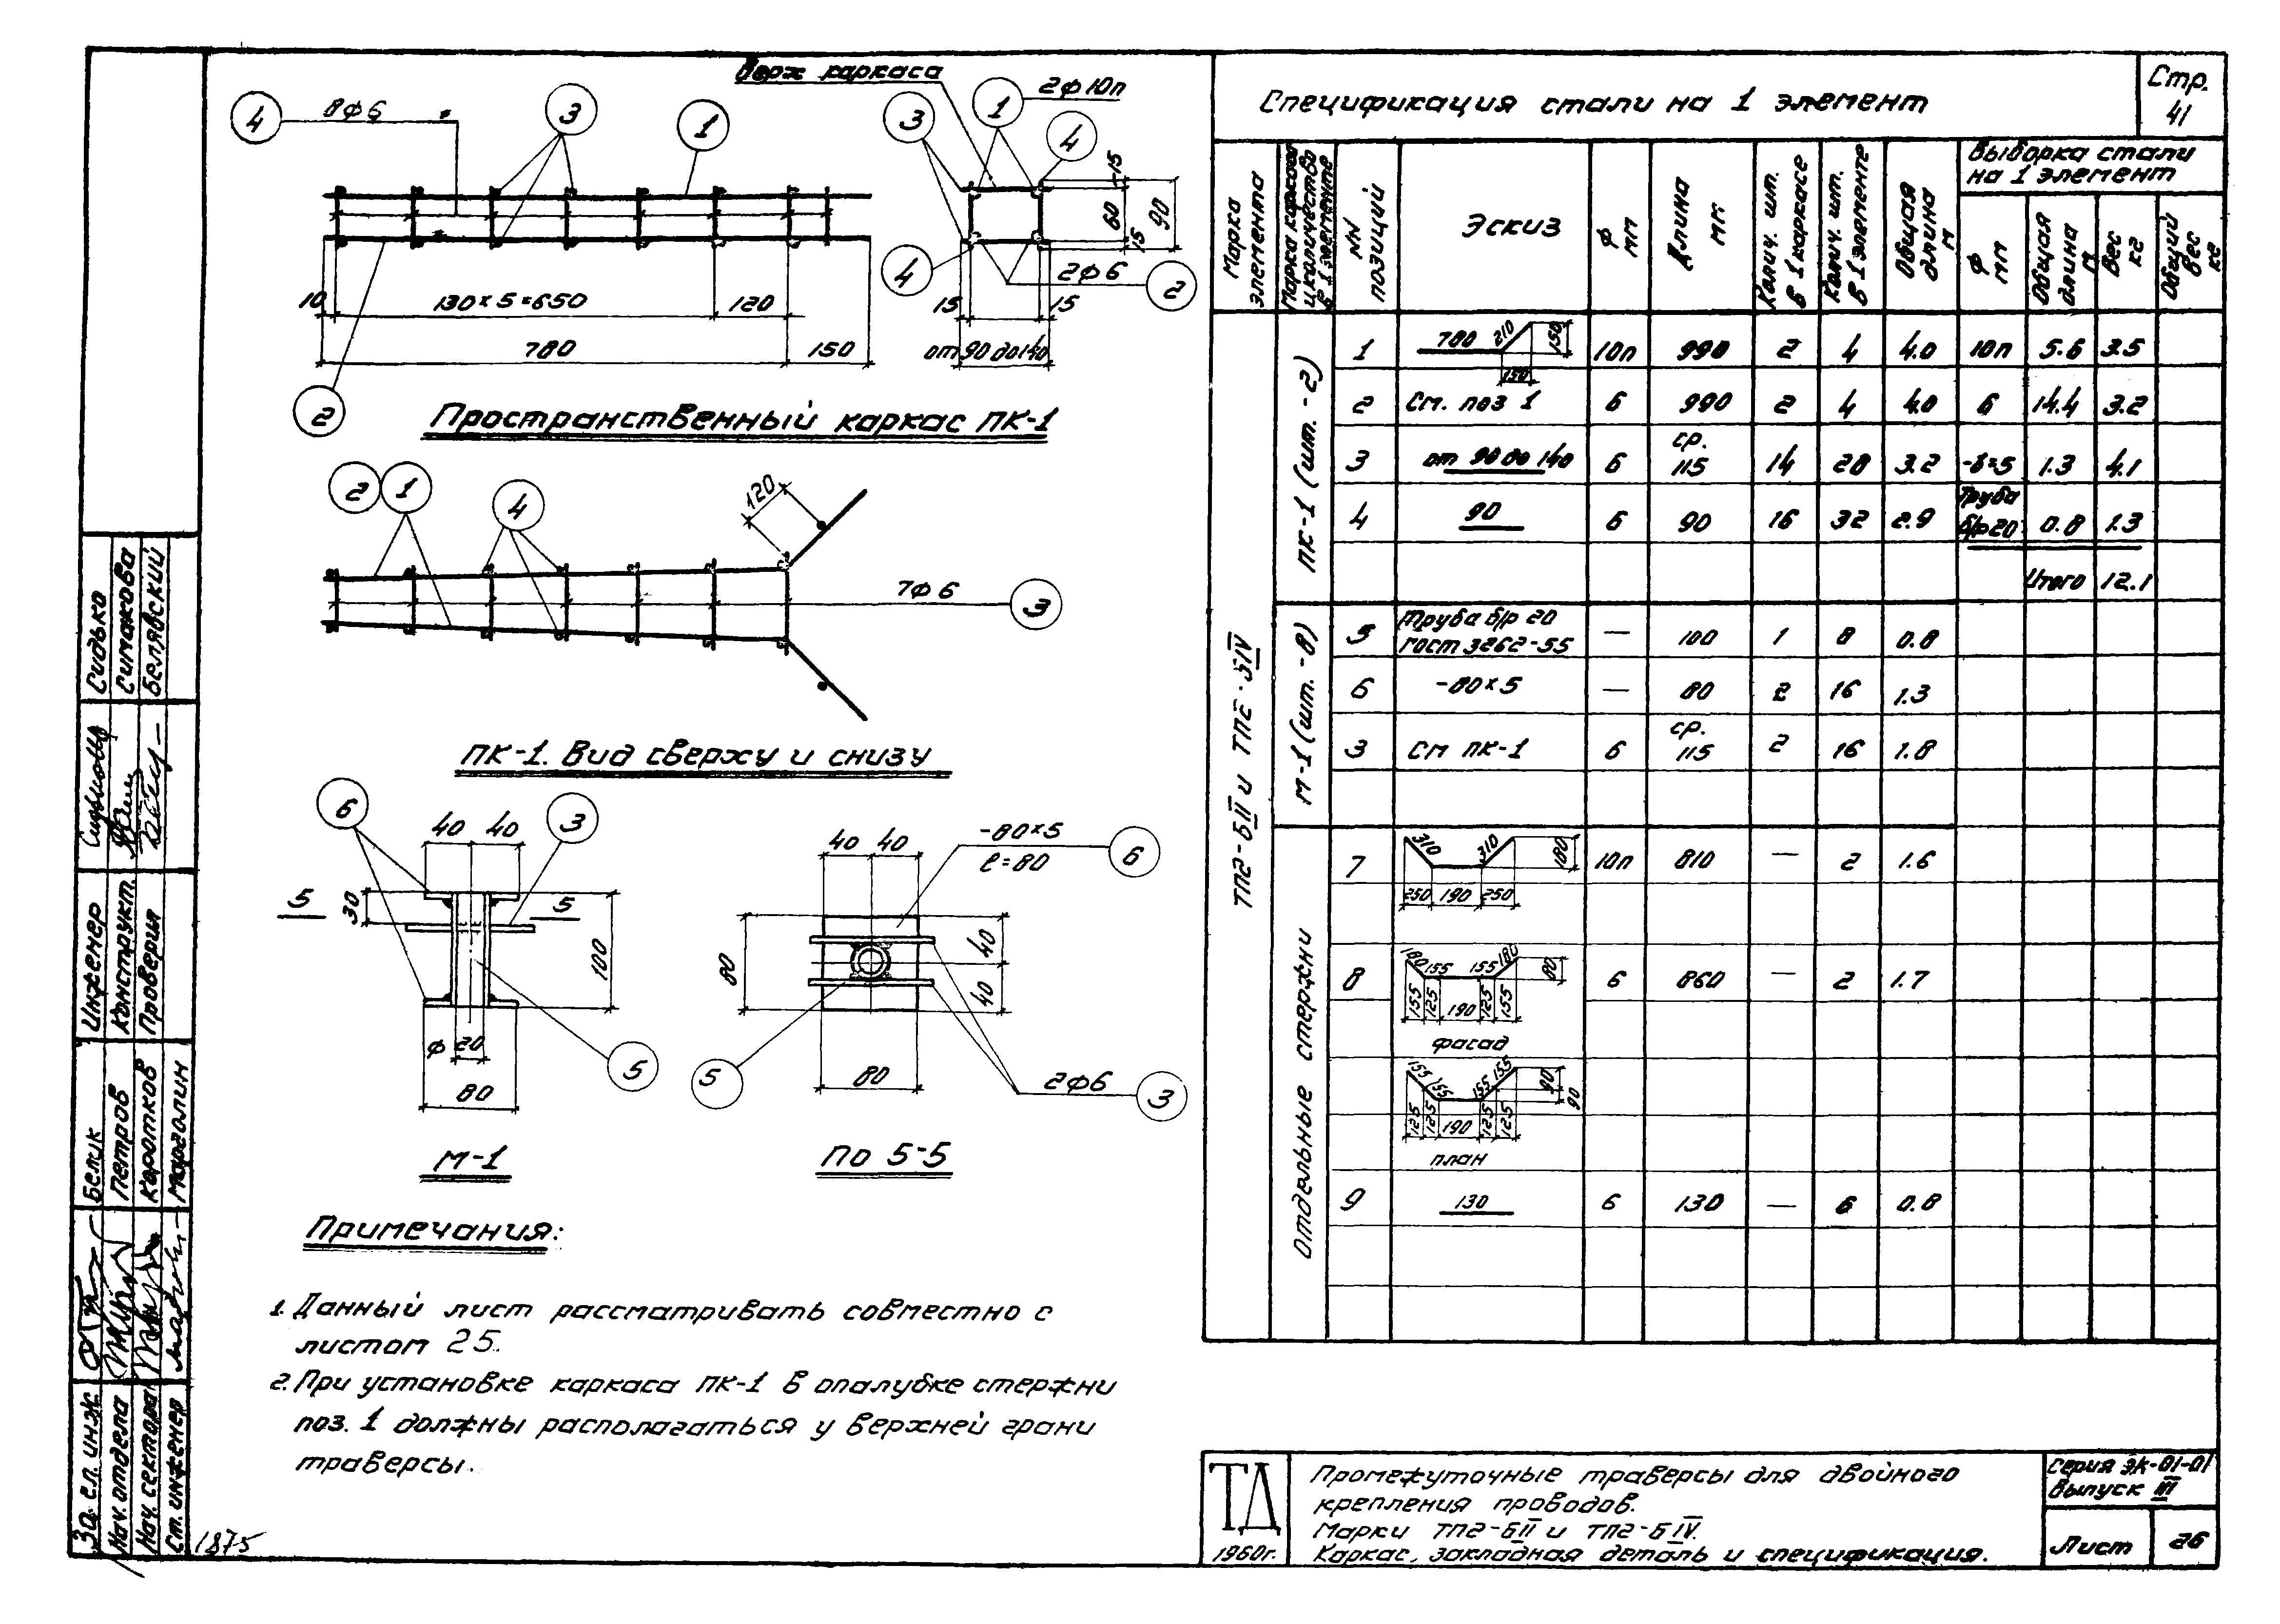 Верх каркаса
4
8ф6
3
1
3
1
2ф10п
4
15
60
90
15
4
2ф6
2
15
15
от 90 до 140
10
130×5=650
120
780
150
2
Пространственный каркас ПК-1
2
1
4
120
7ф6
3
ПК-1. Вид сверху и снизу
6
40
40
3
5
5
30
100
ф 20
5
80
М-1
40
40
-80×5
ℓ=80
6
80
40
40
5
80
2ф6
3
По 5-5
Примечания:
1. Данный лист рассматривать совместно с
листом 25.
2. При установке каркаса ПК-1 в опалубке стержни
поз. 1 должны располагаться у верхней грани
траверсы.
Спецификация стали на 1 элемент
Стр.
41
Марка элемента
Марка каркасов и количество в 1 элементе
NN позиций
Эскиз
ф мм
Длина мм
Колич. шт. в 1 каркасе
Колич. шт. в 1 элементе
Общая длина м
Выборка стали
на 1 элемент
ф мм
Общая длина м
Вес кг
Общий вес кг
ТП2-БII и ТП2-БIV
ПК-1 (шт. -2)
1 780 210 150 150 10п 990 2 4 4.0 10п 5.6 3.5
2 См. поз 1 6 990 2 4 4.0 6 14.4 3.2
3 от 90 до 140 6 ср. 115 14 28 3.2 -δ=5 1.3 4.1
4 90 6 90 16 32 2.9 Труба б/р 20 0.8 1.3
Итого 12.1
М-1 (шт. -8)
5 Труба б/р 20 ГОСТ 3262-55 — 100 1 8 0.8
6 -80×5 — 80 2 16 1.3
3 См ПК-1 6 ср. 115 2 16 1.8
Отдельные стержни
7 310 310 180 10п 810 — 2 1.6
250 190 250
8 180 155 155 180 80 6 860 — 2 1.7
155 125 190 125 155
фасад
155 155 155 155 90 90
125 125 190 125 125
план
9 130 6 130 — 6 0.8
ТД
1960г.
Промежуточные траверсы для двойного
крепления проводов.
Марки ТП2-БII и ТП2-БIV.
Каркас, закладная деталь и спецификация.
Серия ЭК-01-01
Выпуск III
Лист 26
Сидько
Симакова
Белявский
Инженер
Конструкт.
Проверил
Белик
Петров
Коротков
Марголин
Зо. гл. инж.
Нач. отдела
Нач. сектора
Ст. инженер
1875